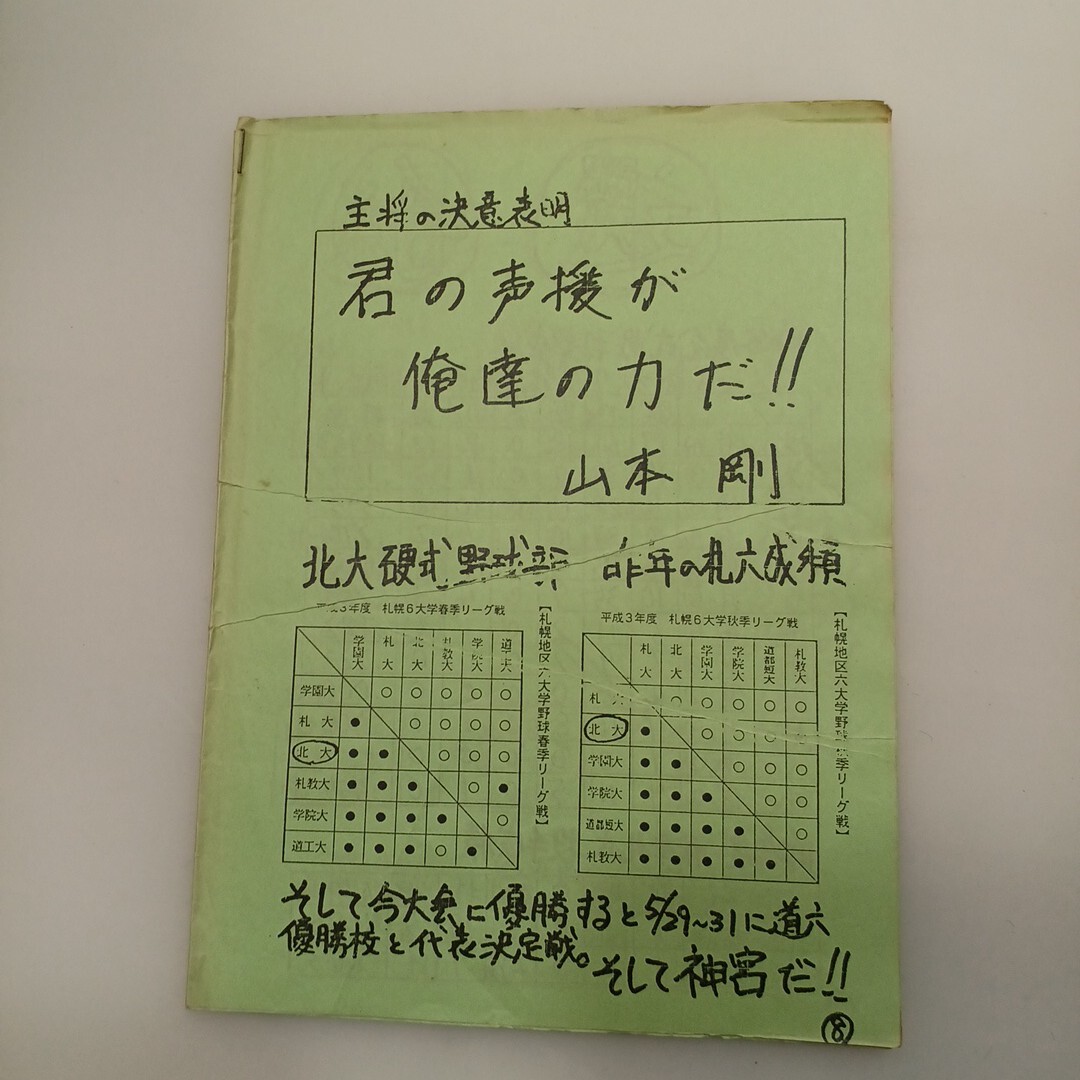 主将の決意表明
君の声援が
俺達の力だ!!
山本 剛
北大硬式野球部 昨年の札六成績
平成3年度 札幌6大学春季リーグ戦
学園大 札大 北大 札教大 学院大 道工大
学園大 ○ ○ ○ ○ ○
札大 ● ○ ○ ○ ○
北大 ● ● ○ ○ ○
札教大 ● ● ● ○ ●
学院大 ● ● ● ● ○
道工大 ● ● ● ○ ●
【札幌地区六大学野球春季リーグ戦】
平成3年度 札幌6大学秋季リーグ戦
札大 北大 学園大 学院大 道都短大 札教大
札大 ○ ○ ○ ○ ○
北大 ● ○ ○ ○ ○
学園大 ● ● ○ ○ ○
学院大 ● ● ● ○ ○
道都短大 ● ● ● ● ○
札教大 ● ● ● ● ●
【札幌地区六大学野球秋季リーグ戦】
そして今大会に優勝すると5/29~31に道六
優勝校と代表決定戦。
そして神宮だ!!
⑧